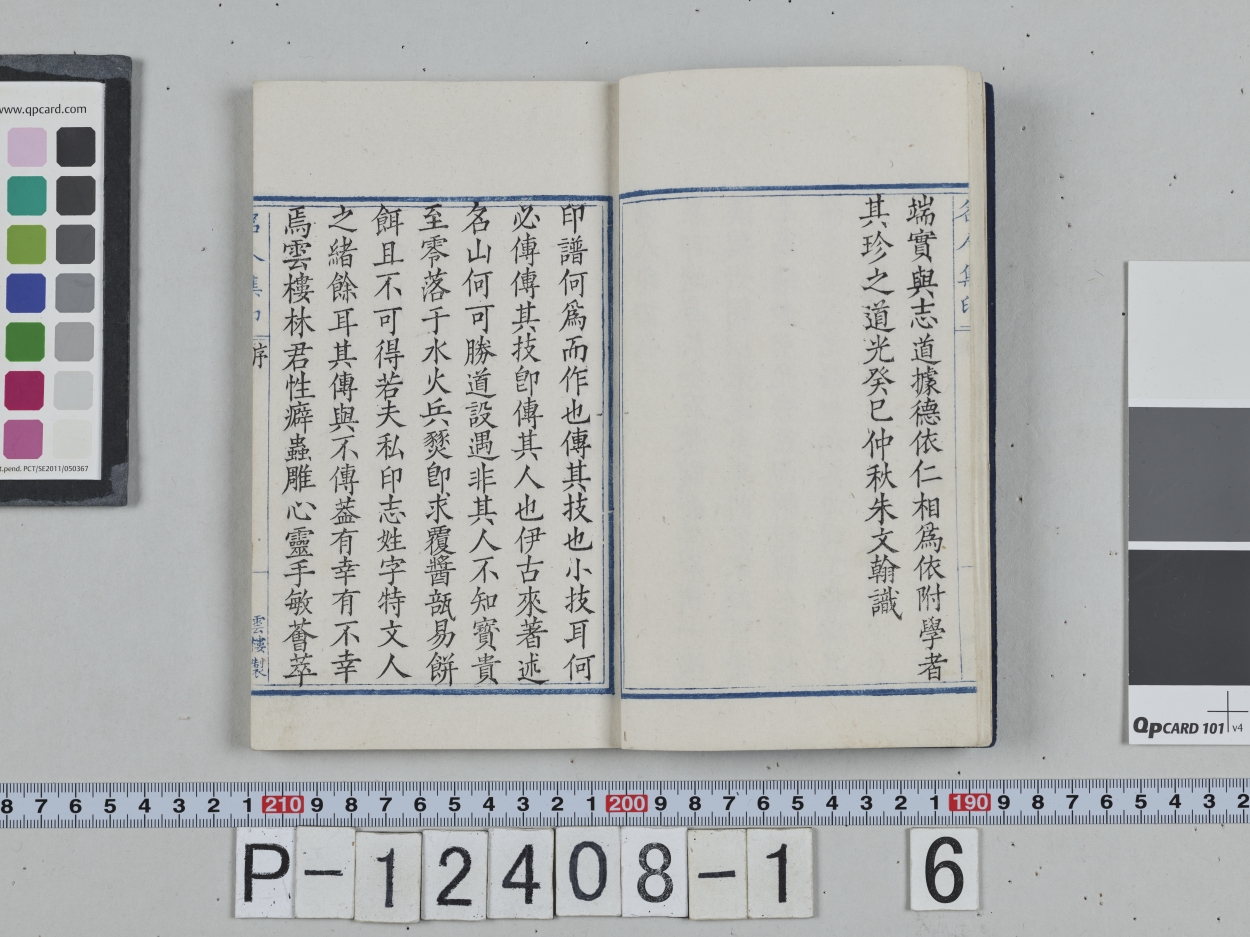 www.qpcard.com
t.pend. PCT/SE2011/050367
端實與志道據德依仁相爲依附學者
其珍之道光癸巳仲秋朱文翰識
印譜何爲而作也傳其技也小技耳何
必傳傳其技卽傳其人也伊古來著述
名山何可勝道設遇非其人不知寳貴
至零落于水火兵燹卽求覆醬瓿易餅
餌且不可得若夫私印志姓字特文人
之緒餘耳其傳與不傳葢有幸有不幸
焉雲樓林君性癖蟲雕心靈手敏薈萃
名人集印
序
雲樓製
QPCARD 101 v4
8 7 6 5 4 3 2 1 210 9 8 7 6 5 4 3 2 1 200 9 8 7 6 5 4 3 2 1 190 9 8 7 6 5 4 3 2
P-12408-1 6